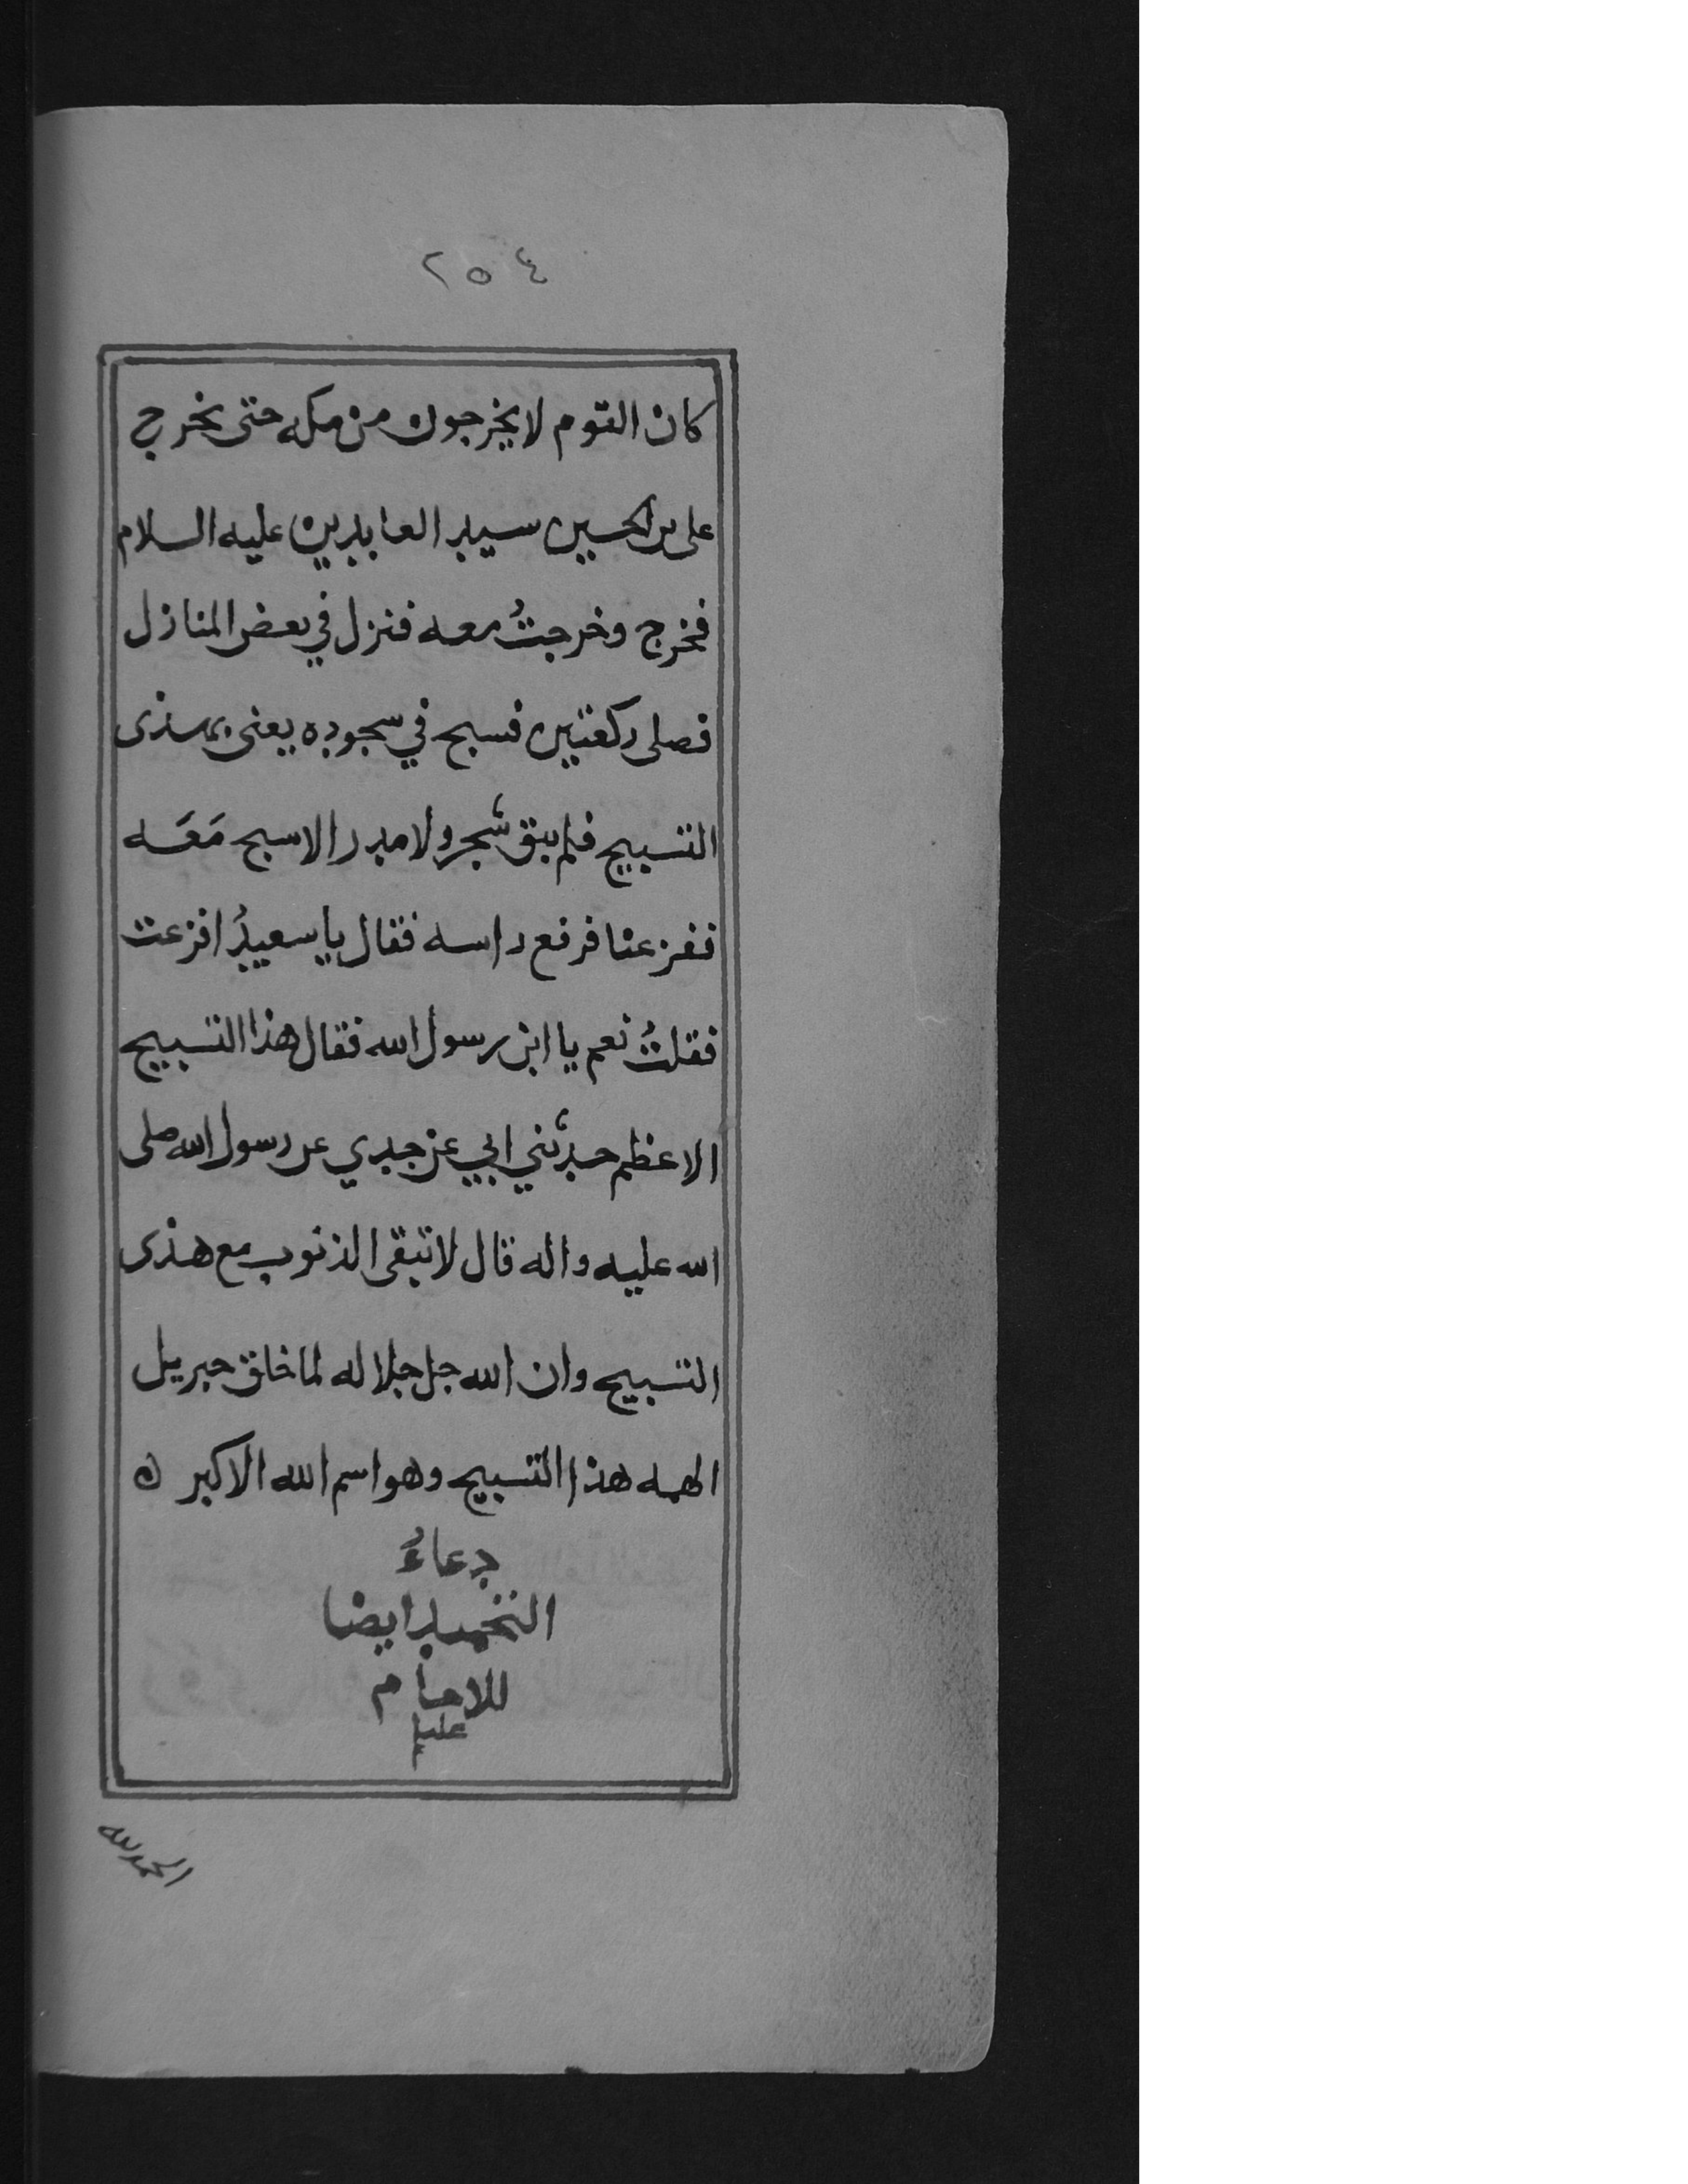 ٢٥٤
كان القوم لا يخرجون من مكه حتى يخرج
على بن الحسين سيد العابدين عليه السلام
فخرج وخرجتُ معه فنزل في بعض المنازل
فصلى ركعتين فسبح في سجوده يعنى بهذى
التسبيح فلم يبق شجر ولا مدر الا سبح مَعَه
ففزعنا فرفع راسه فقال يا سعيدُ افزعت
فقلتُ نعم يا ابن رسول الله فقال هذا التسبيح
الاعظم حدثني ابي عن جدي عن رسول الله صلى
الله عليه واله قال لا تبقى الذنوب مع هذى
التسبيح وان الله جل جلاله لما خلق جبريل
الهمه هذا التسبيح وهو اسم الله الاكبر ه
دعاءُ
التحميد ايضا
للامام
عليلم
الحمد لله